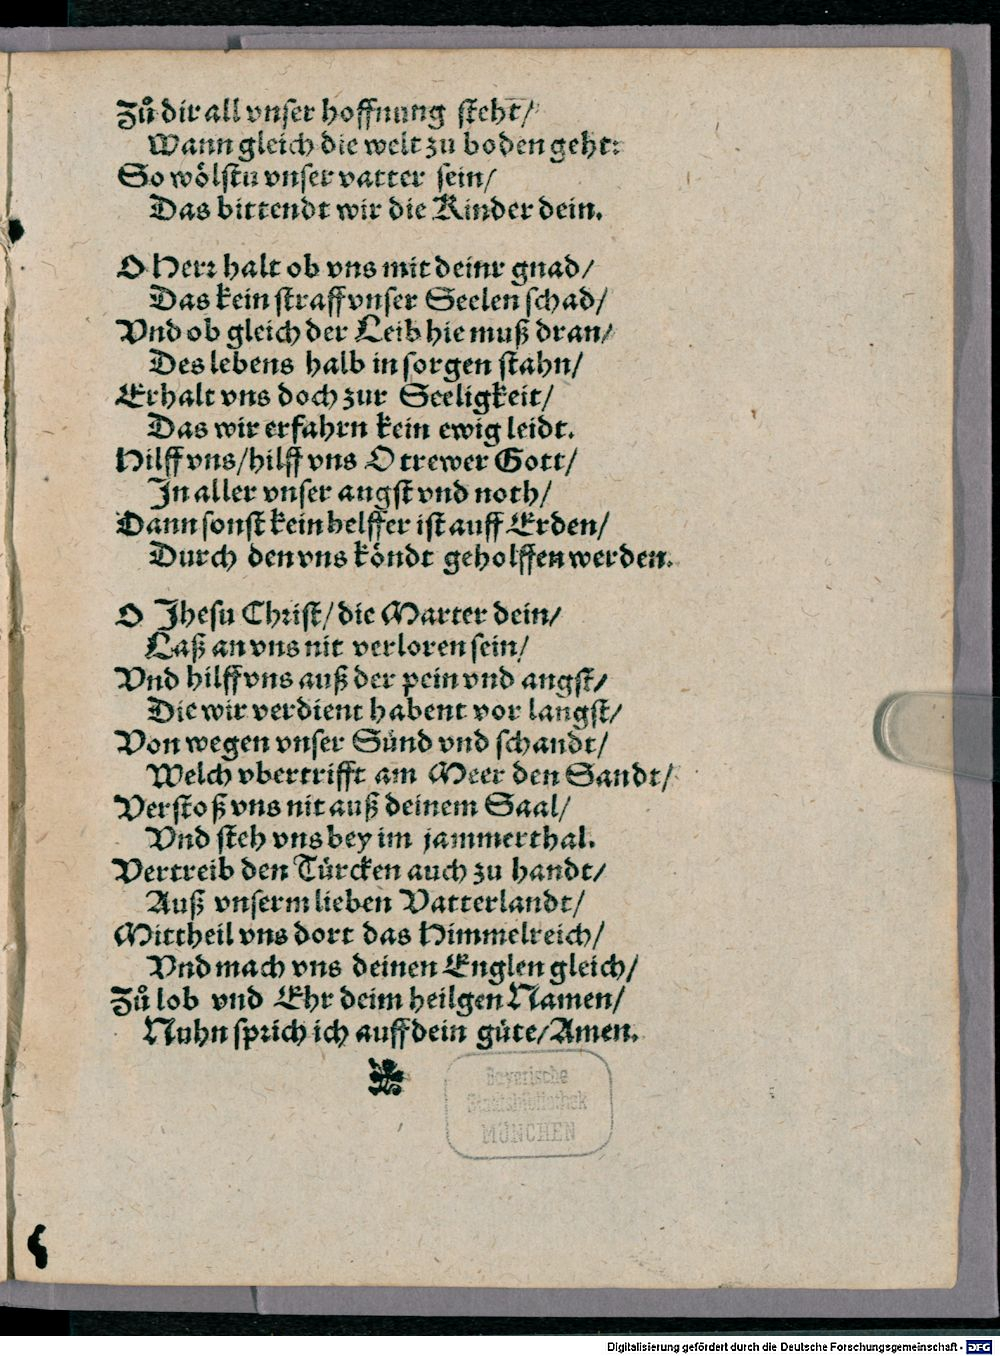 Zů dir all vnser hoffnung steht/
Wann gleich die welt zu boden geht:
So wölstu vnser vatter sein/
Das bittendt wir die Kinder dein.
O Herr halt ob vns mit deinr gnad/
Das kein straff vnser Seelen schad/
Vnd ob gleich der Leib hie muß dran/
Des lebens halb in sorgen stahn/
Erhalt vns doch zur Seeligkeit/
Das wir erfahrn kein ewig leidt.
Hilff vns/hilff vns O trewer Gott/
In aller vnser angst vnd noth/
Dann sonst kein helffer ist auff Erden/
Durch den vns köndt geholffen werden.
O Jhesu Christ/die Marter dein/
Laß an vns nit verloren sein/
Vnd hilff vns auß der pein vnd angst/
Die wir verdient habent vor langst/
Von wegen vnser Sünd vnd schandt/
Welch vbertrifft am Meer den Sandt/
Verstoß vns nit auß deinem Saal/
Vnd steh vns bey im jammerthal.
Vertreib den Türcken auch zu handt/
Auß vnserm lieben Vatterlandt/
Mittheil vns dort das Himmelreich/
Vnd mach vns deinen Englen gleich/
Zů lob vnd Ehr deim heilgen Namen/
Nuhn sprich ich auff dein güte/Amen.
Bayerische
Staatsbibliothek
MÜNCHEN
Digitalisierung gefördert durch die Deutsche Forschungsgemeinschaft - DFG